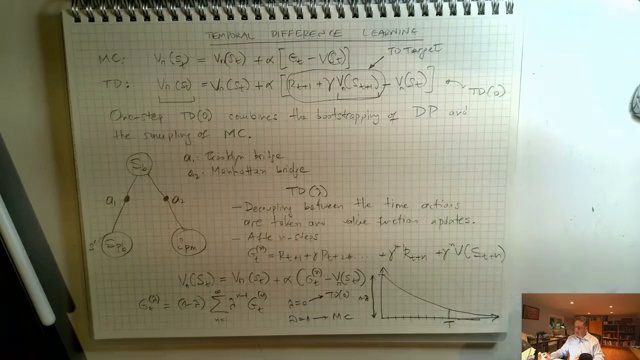 TEMPORAL DIFFERENCE LEARNING
MC: Vπ(St) = Vπ(St) + α [Gt - V(St)]
TD Target
TD: Vπ(St) = Vπ(St) + α [Rt+1 + γ Vπ(St+1) - Vπ(St)] TD(0)
One-step TD(0) combines the bootstrapping of DP and
the sampling of MC.
S0
a1: Brooklyn bridge
a2: Manhattan bridge
a1 a2
TD(λ)
- Decoupling between the time actions
are taken and value function updates.
- After n-steps
Gt(n) = Rt+1 + γ Rt+2 + ... + γ^n-1 Rt+n + γ^n V(St+n)
Vπ(St) = Vπ(St) + α (Gt(n) - Vπ(St))
Gt(λ) = (1-λ) Σ n=1 ∞ λ^n-1 Gt(n)
λ=0 → TD(0)
λ=1 → MC
T